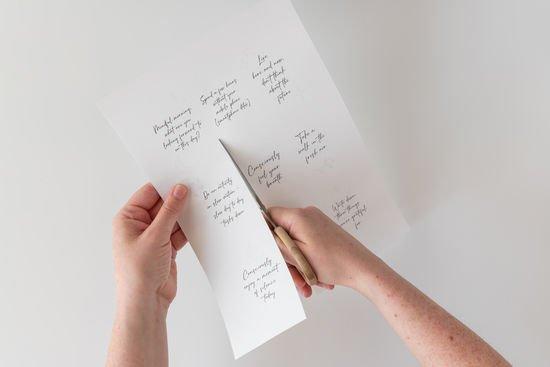 Mindful morning:
what are you
looking forward to
on this day?
Spend a few hours
without your
mobile phone
(smartphone detox)
Live
here and now,
don't think
about the
future
Do an activity
in slow motion
slow day to day
down
Consciously
feel your
breath
Take a
walk in the
fresh air
Write down
three things
you're grateful
for
Consciously
enjoy a moment
of silence
today